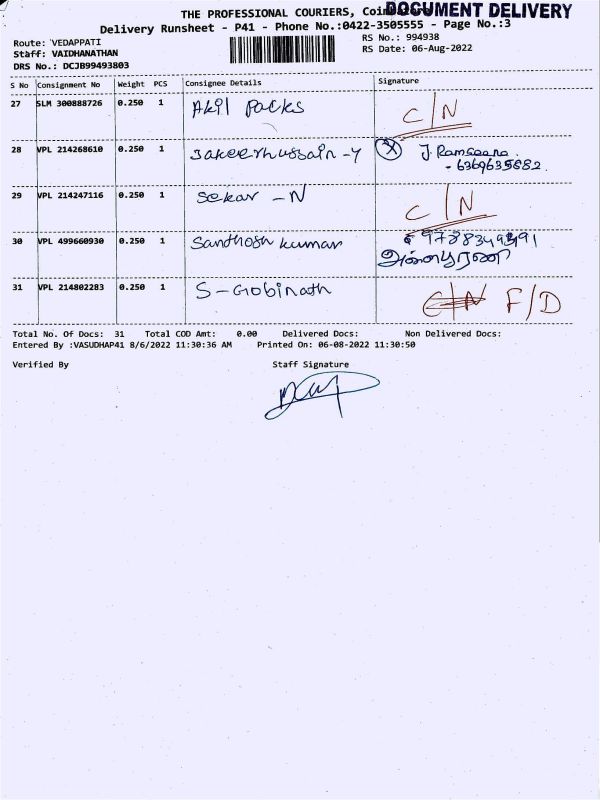 THE PROFESSIONAL COURIERS, Coimbatore
DOCUMENT DELIVERY
Delivery Runsheet - P41 - Phone No.:0422-3505555 - Page No.:3
Route: VEDAPPATI
RS No.: 994938
Staff: VAIDHANATHAN
RS Date: 06-Aug-2022
DRS No.: DCJB99493803
S No Consignment No Weight PCS Consignee Details Signature
27 SLM 300888726 0.250 1 Akil Packs C/N
28 VPL 214268610 0.250 1 Jakeerhussain - Y J. Ramseena
- 6369635682.
29 VPL 214247116 0.250 1 Sekar - N C/N
30 VPL 499660930 0.250 1 Santhosh kumar
அன்னபூரணி
31 VPL 214802283 0.250 1 S - Gobinath C/N F/D
Total No. Of Docs: 31 Total COD Amt: 0.00 Delivered Docs: Non Delivered Docs:
Entered By :VASUDHAP41 8/6/2022 11:30:36 AM Printed On: 06-08-2022 11:30:50
Verified By Staff Signature